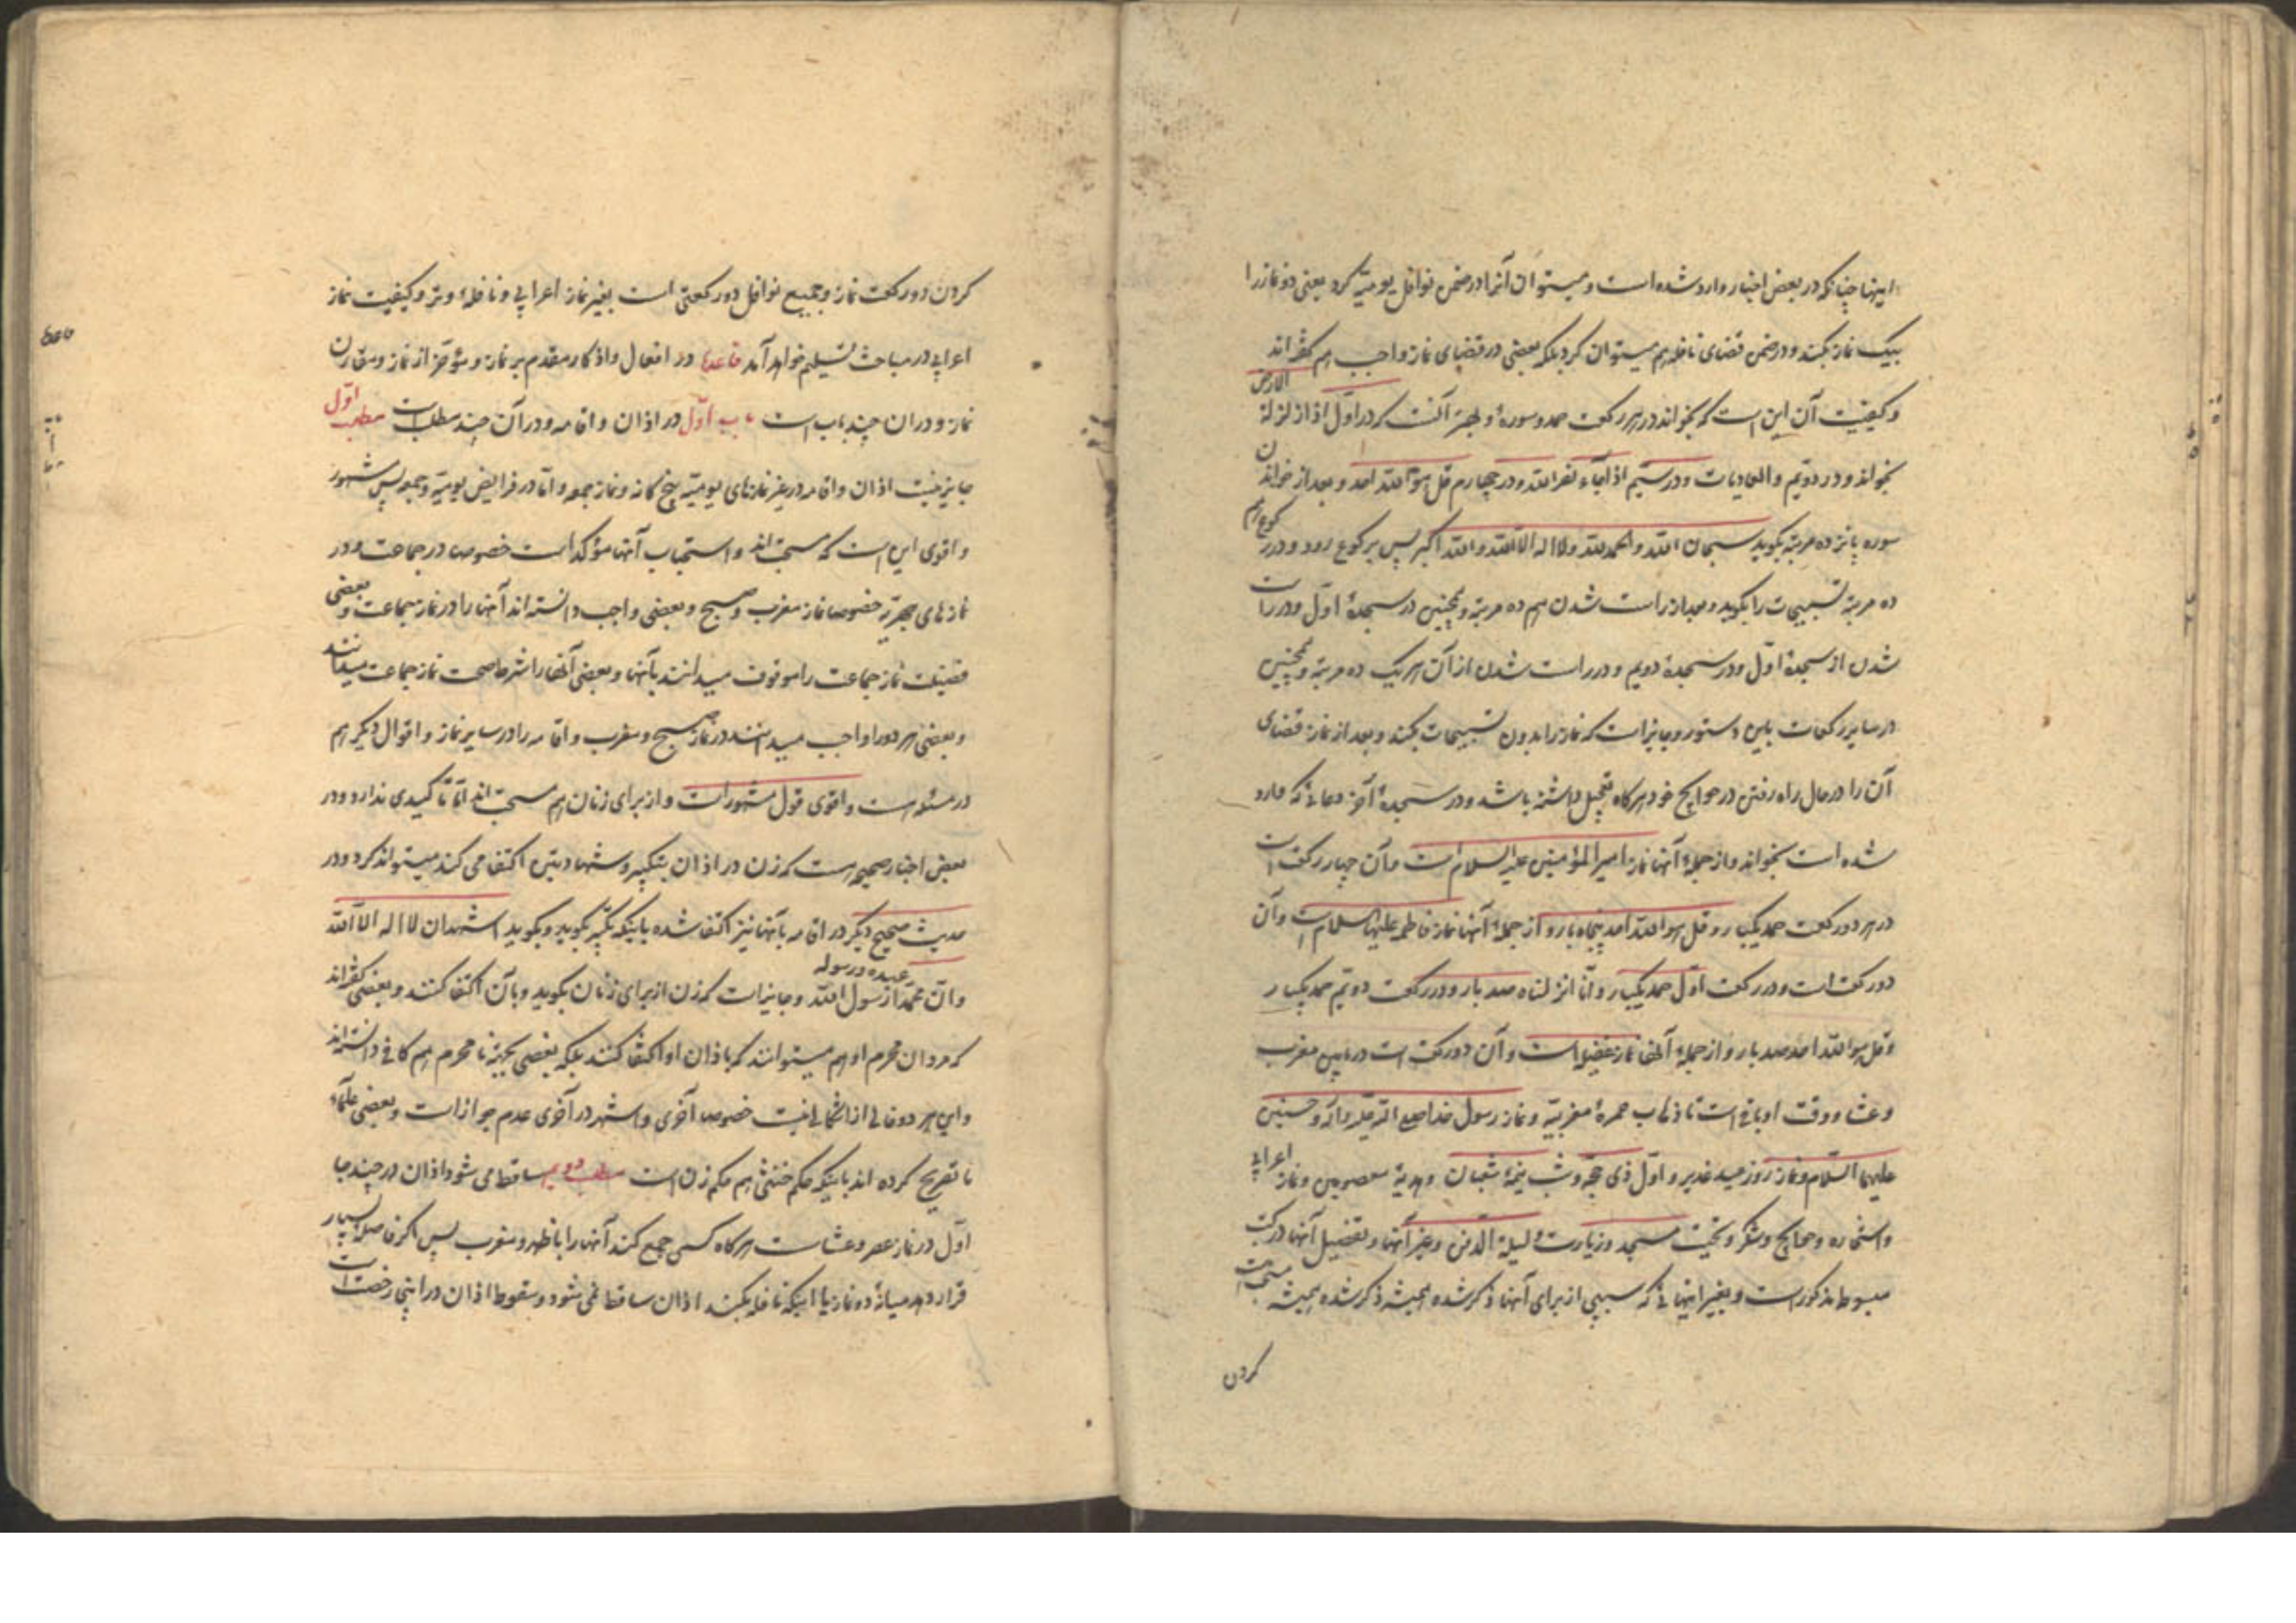 اینها چنانکه در بعض اخبار وارد شده است و میتوان آنرا در ضمن نوافل یومیّه کرد یعنی دو نماز را
بیک نماز بکند و در ضمن قضای نافله هم میتوان کرد بلکه بعضی در قضای نماز واجب هم گفته‌اند
و کیفیت آن این است که بخواند در هر رکعت حمد و سورهٔ و بهتر آنست که در اوّل اذا زلزلة الارض
بخواند و در دویم والعادیات و در سیّم اذا جاء نصر الله و در چهارم قل هو الله احد و بعد از خواندن
سوره پانزده مرتبه بگوید سبحان الله والحمد لله ولا اله الا الله والله اکبر پس برکوع رود و در رکوع هم
ده مرتبه تسبیحات را بگوید و بعد از راست شدن هم ده مرتبه و همچنین در سجدهٔ اوّل و در راست
شدن از سجدهٔ اوّل و در سجدهٔ دویم و در راست شدن از آن هر یک ده مرتبه و همچنین
در سایر رکعات باین دستور و جایز است که نماز را بدون تسبیحات بکند و بعد از نماز قضای
آن را در حال راه رفتن در حوایج خود هرگاه تعجیل داشته باشد و در سجدهٔ آخر دعائی که وارد
شده است بخواند و از جملهٔ آنها نماز امیر المؤمنین علیه السلام است و آن چهار رکعت است
در هر دو رکعت حمد یکبار و قل هو الله احد پنجاه بار و از جملهٔ آنها نماز فاطمه علیها السلام است و آن
دو رکعت است و در رکعت اوّل حمد یکبار و انّا انزلناه صد بار و در رکعت دویم حمد یکبار
و قل هو الله احد صد بار و از جملهٔ آنها نماز غفیله است و آن دو رکعت است در مابین مغرب
و عشا و وقت او باقی است تا ذهاب حمرهٔ مغربیّه و نماز رسول خدا صلی الله علیه وآله و حسنین
علیهما السّلام و نماز روز عید غدیر و اوّل ذی حجّه و شب نیمهٔ شعبان و هدیهٔ معصومین و نماز اعرابی
و استخاره و حوایج و شکر و تحیّت مسجد و زیارت و لیلة الدفن و غیر آنها و تفصیل آنها در کتب
مبسوط مذکور است و بغیر اینهائی که سببی از برای آنها ذکر شده همیشه مستحب است
کردن
کردن دو رکعت نماز و جمیع نوافل دو رکعتی است بغیر نماز اعرابی و نافلهٔ وتر و کیفیت نماز
اعرابی در مباحث تسلیم خواهد آمد در افعال و اذکار مقدم بر نماز و مؤخر از نماز و مقارن
نماز و در آن چند باب است باب اوّل در اذان و اقامه و در آن چند مطلب است مطلب اوّل
جایز نیست اذان و اقامه در غیر نمازهای یومیّه پنج گانه و نماز جمعه و امّا در فرایض یومیّه و جمعه پس مشهور
و اقوی این است که مستحب‌اند و استحباب آنها مؤکد است خصوص در جماعت و در
نمازهای جهریّه خصوصا نماز مغرب و صبح و بعضی واجب دانسته‌اند آنها را در نماز جماعت و بعضی
فضیلت نماز جماعت را موقوف میدانند بآنها و بعضی آنها را شرط صحت نماز جماعت میدانند
و بعضی هر دو را واجب میدانند در نماز صبح و مغرب و اقامه را در سایر نماز و اقوال دیگر هم
در مسئله هست و اقوی قول مشهور است و از برای زنان هم مستحب‌اند امّا تاکیدی ندارد و در
بعض اخبار صحیحه هست که زن در اذان بتکبیر و شهادتین اکتفا می کند میتواند کرد و در
حدیث صحیح دیگر در اقامه بآنها نیز اکتفا شده باینکه تکبیر بگوید و بگوید اشهد ان لا اله الا الله
وانّ محمدا عبده و رسوله رسول الله و جایز است که زن از برای زنان بگوید و بآن اکتفا کنند و بعضی گفته‌اند
که مردان محرم او هم میتوانند که باذان او اکتفا کنند بلکه بعضی بجهة نامحرم هم کافی دانسته‌اند
و این هر دو خالی از اشکالی نیست خصوص آخری و اشهر در آخری عدم جواز است و بعضی علماء
ما تصریح کرده‌اند باینکه حکم خنثی هم حکم زن است مطلب دویم ساقط می شود اذان در چند جا
اوّل در نماز عصر و عشاست هرگاه کسی جمع کند آنها را با ظهر و مغرب پس اگر فاصله بسیار
قرار دهد میانهٔ دو نماز یا اینکه نافله بکند اذان ساقط نمی شود و سقوط اذان در اینجا رخصت است